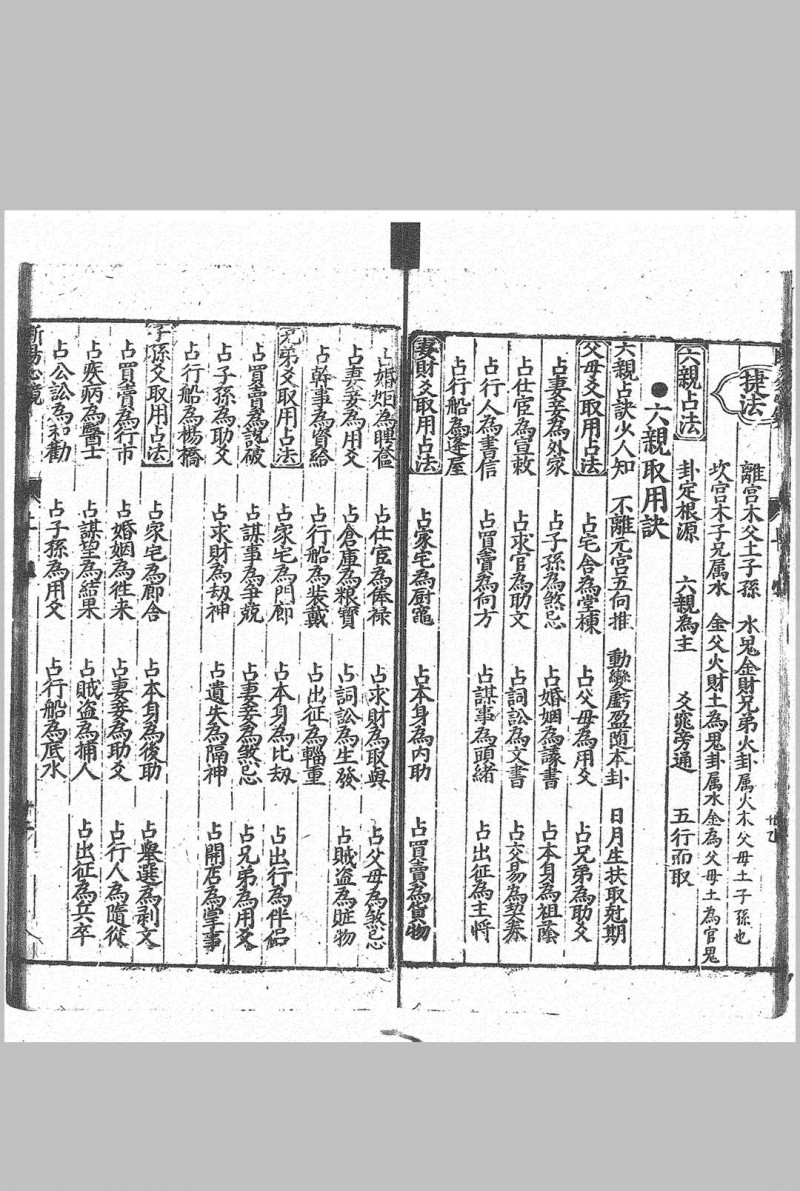 捷法
離宮木父土子孫 水鬼金財兄弟火卦屬火木父母土子孫也
坎宮木子兄属水 金父火財土為鬼卦属水金為父母土為官鬼
六親占法 卦定根源 六親為主 爻究旁通 五行而取
●六親取用訣
六親占訣少人知 不離元宮五向推 動變虧盈随本卦 日月生扶取尅期
父母爻取用占法 占宅舎為堂棟 占父母為用爻 占兄弟為助爻
占妻妾為外家 占子孫為煞忌 占婚姻為議書 占本身為祖蔭
占仕宦為宣敕 占求官為助文 占詞訟為文書 占交易為契券
占行人為書信 占買賣為向方 占謀事為頭緒 占出征為主将
占行船為蓬屋
妻財爻取用占法 占家宅為厨竈 占本身為内助 占買賣為貨物
占婚姻為聘 占仕宦為俸禄 占求財為取與 占父母為煞忌
占妻妾為用爻 占倉庫為粮寶 占詞訟為生發 占賊盗為賍物
占幹事為資給 占行船為裝戴 占出征為輜重
兄弟爻取用占法 占家宅為門郎 占本身為比刼 占出行為伴侣
占買賣為説破 占謀事為争兢 占妻妾為煞忌 占兄弟為用爻
占子孫為助爻 占求財為刼神 占遺失為隔神 占開店為掌事
占行船為楊橋
子孫爻取用占法 占家宅為郎舎 占本身為後助 占舉選為剥文
占買賣為行市 占婚姻為徃来 占妻妾為助爻 占行人為隨從
占疾病為醫士 占謀望為結果 占賊盗為捕人 占出征為兵卒
占公訟為和勸 占子孫為用爻 占行船為底水
断易心鏡